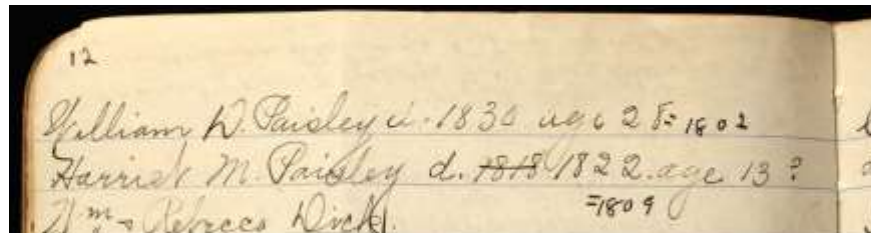 12
William D. Paisley d. 1830 age 28 = 1802
Harriet M. Paisley d. 1818 1822. age 13 ?
=1809
Wm & Rebecca Dick.